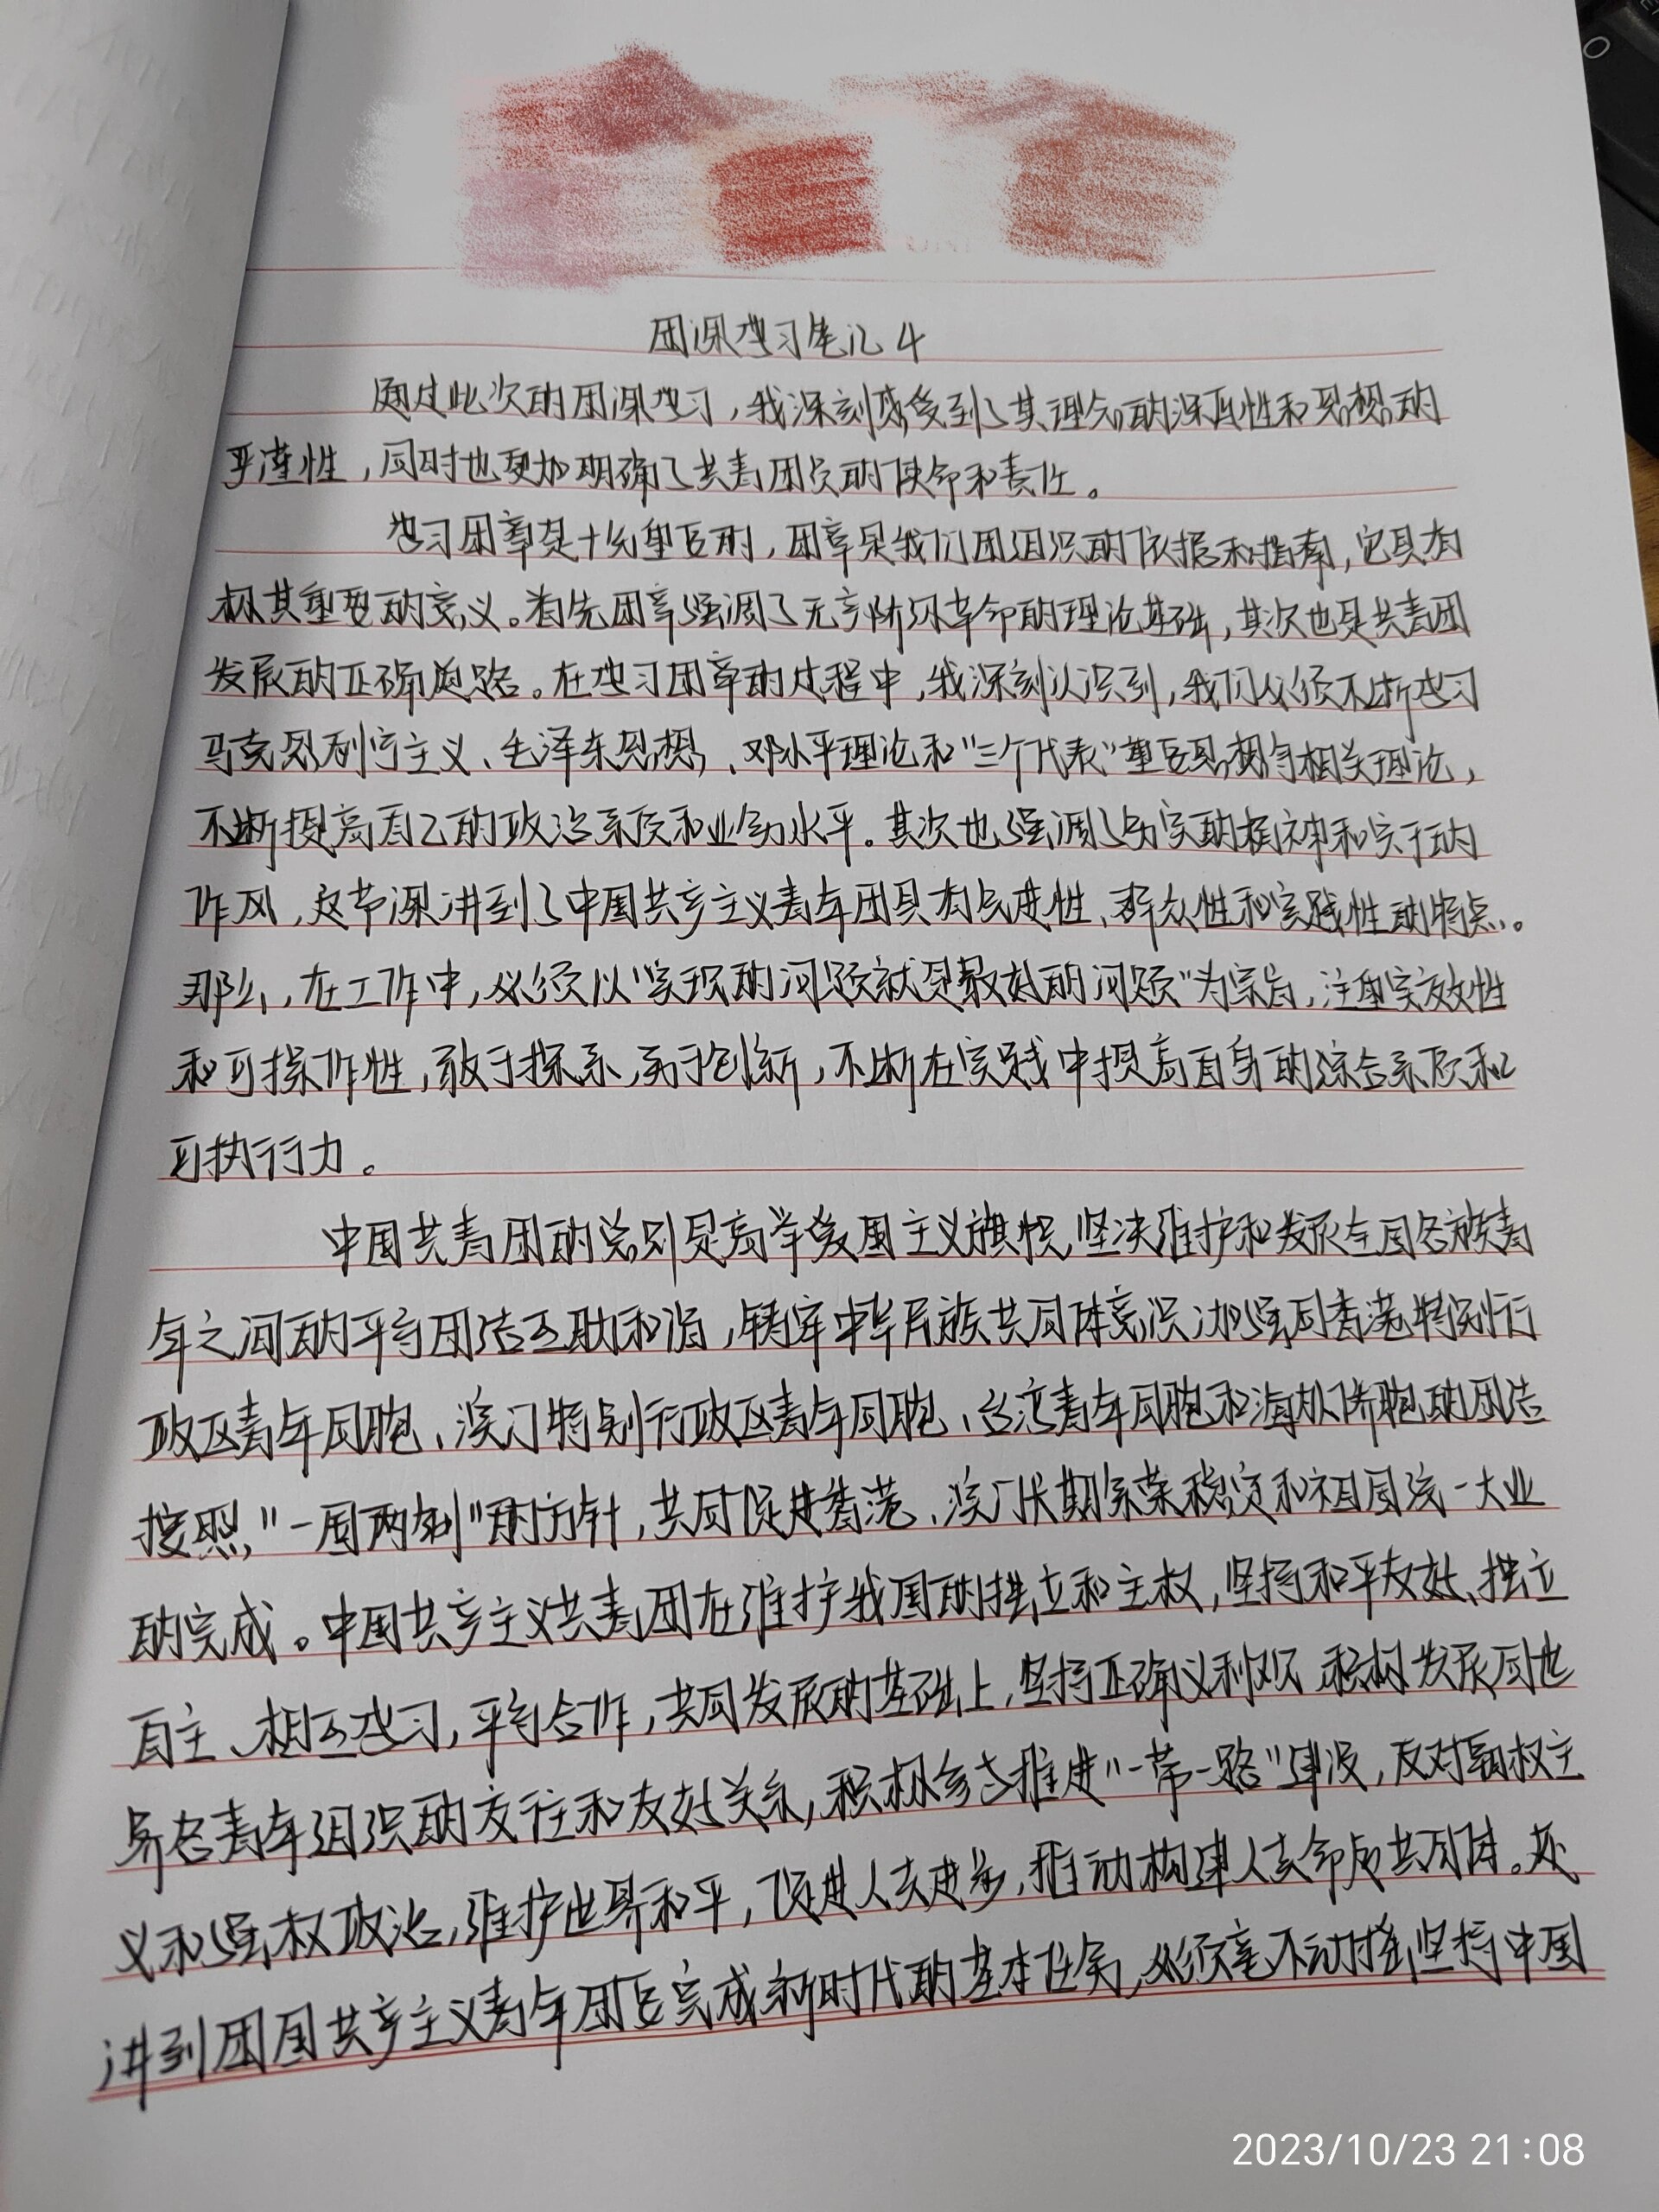 团课学习笔记4
通过此次的团课学习，我深刻感受到了其理论的深厚性和思想的
严谨性，同时也更加明确了共青团员的使命和责任。
学习团章是十分重要的，团章是我们团组织的依据和指南，它具有
极其重要的意义。首先团章强调了无产阶级革命的理论基础，其次也是共青团
发展的正确道路。在学习团章的过程中，我深刻认识到，我们必须不断学习
马克思列宁主义、毛泽东思想、邓小平理论和“三个代表”重要思想等相关理论，
不断提高自己的政治素质和业务水平。其次也强调了务实的精神和实干的
作风，这节课讲到了中国共产主义青年团具有先进性、群众性和实践性的特点。
那么，在工作中，必须以“实现的问题就是最好的问题”为宗旨，注重实效性
和可操作性，敢于探索，勇于创新，不断在实践中提高自身的综合素质和
可执行力。
中国共青团的总则是高举爱国主义旗帜，坚决维护和发展全国各族青
年之间的平等团结互助和谐，铸牢中华民族共同体意识，加强同香港特别行
政区青年同胞、澳门特别行政区青年同胞、台湾青年同胞和海外侨胞的团结
按照“一国两制”的方针，共同促进香港、澳门长期繁荣稳定和祖国统一大业
的完成。中国共产主义共青团在维护我国的独立和主权，坚持和平友好、独立
自主、相互学习，平等合作，共同发展的基础上，坚持正确义利观 积极发展同世
界各青年组织的交往和友好关系，积极参与推进“一带一路”建设，反对霸权主
义和强权政治，维护世界和平，促进人类进步，推动构建人类命运共同体。还
讲到团国共产主义青年团要完成新时代的基本任务，必须毫不动摇坚持中国
2023/10/23 21:08